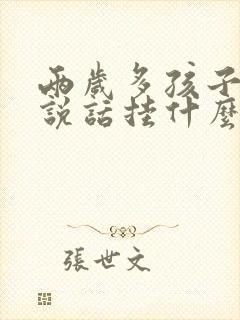 兩歲多孩子
說話挂什麼
張世文